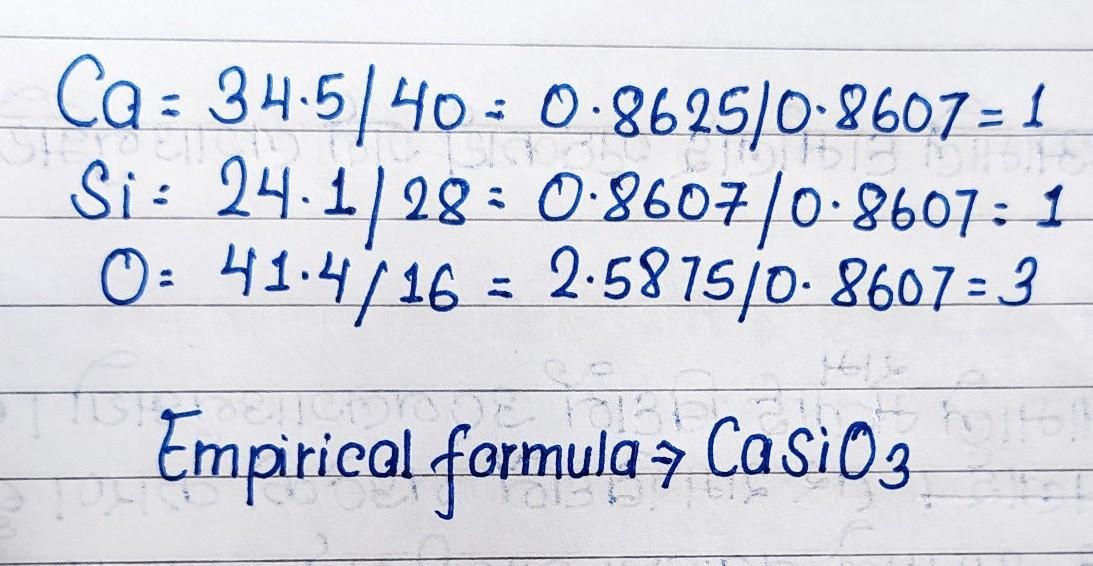 Ca = 34.5/40 = 0.8625/0.8607 = 1
Si = 24.1/28 = 0.8607/0.8607 = 1
O = 41.4/16 = 2.5875/0.8607 = 3
Empirical formula → CaSiO3